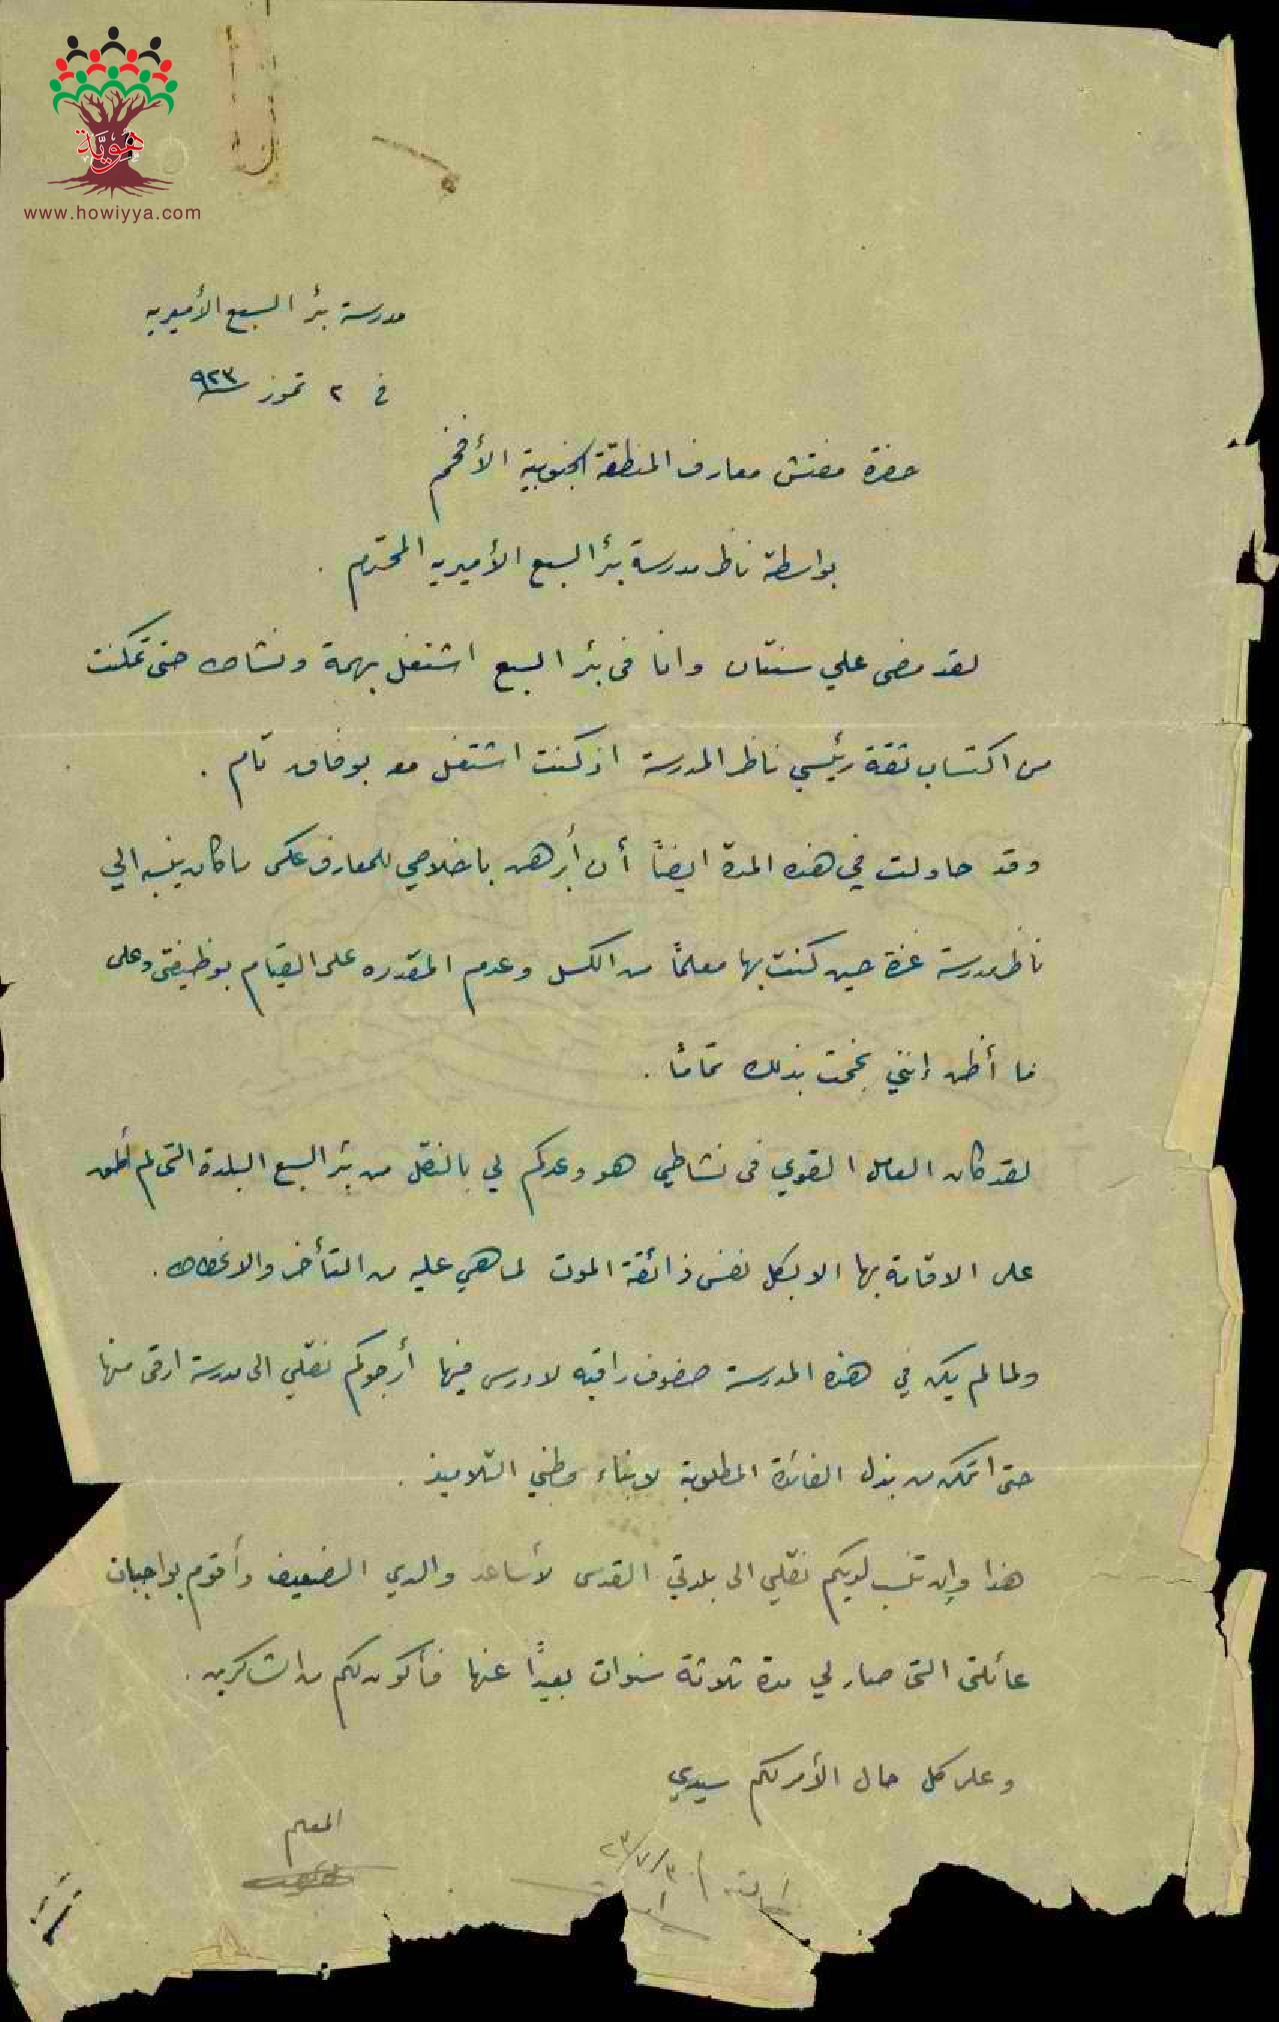 هويّة
www.howiyya.com
مدرسة بئر السبع الأميريه
في ٢ تموز ٩٢٣
حضرة مفتش معارف المنطقة الجنوبية الأفخم
بواسطة ناظر مدرسة بئر السبع الأميريه المحترم .
لقد مضى علي سنتان وانا فى بئر السبع اشتغل بهمة ونشاط حتى تمكنت
من اكتساب ثقة رئيسي ناظر المدرسة اذ كنت اشتغل معه بوفاق تام .
وقد حاولت في هذه المدة ايضاً أن أبرهن باخلاصي للمعارف عكس ما كان ينسبه الي
ناظر مدرسة غزة حين كنت بها معلماً من الكسل وعدم المقدره على القيام بوظيفتى وعلى
ما أظن إنني نجحت بذلك تمامًا .
لقد كان العامل القوي فى نشاطي هو وعدكم لي بالنقل من بئر السبع البلدة التى لم أطق
على الاقامة بها الا بكل نفس ذائقة الموت لما هي عليه من التأخر والانحطاط .
ولما لم يكن في هذه المدرسة صفوف راقيه لادرس فيها أرجوكم نقلي الى مدرسة ارقى منها
حتى اتمكن من بذل الفائدة المطلوبة لابناء وطني التلاميذ .
هذا وإن تنسب لديكم نقلي الى بلدتي القدس لأساعد والدي الضعيف وأقوم بواجبات
عائلتى التى صار لي مدة ثلاثة سنوات بعيدًا عنها فأكون لكم من الشاكرين .
وعلى كل حال الأمر لكم سيدي
المعلم
٢٣/٧/٣